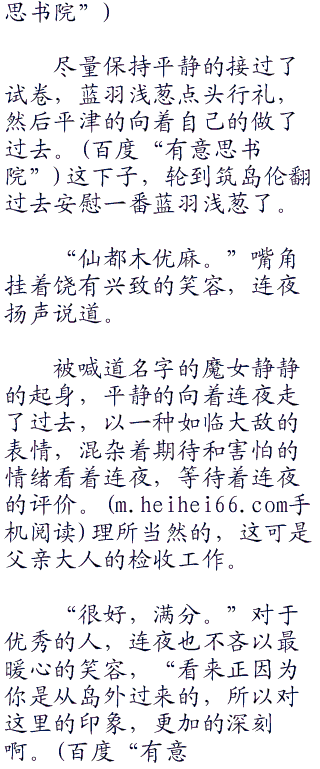 思书院”)
尽量保持平静的接过了
试卷，蓝羽浅葱点头行礼，
然后平津的向着自己的做了
过去。(百度“有意思书
院”)这下子，轮到筑岛伦翻
过去安慰一番蓝羽浅葱了。
“仙都木优麻。”嘴角
挂着饶有兴致的笑容，连夜
扬声说道。
被喊道名字的魔女静静
的起身，平静的向着连夜走
了过去，以一种如临大敌的
表情，混杂着期待和害怕的
情绪看着连夜，等待着连夜
的评价。(m.heihei66.com手
机阅读)理所当然的，这可是
父亲大人的检收工作。
“很好，满分。”对于
优秀的人，连夜也不吝以最
暖心的笑容，“看来正因为
你是从岛外过来的，所以对
这里的印象，更加的深刻
啊。(百度“有意